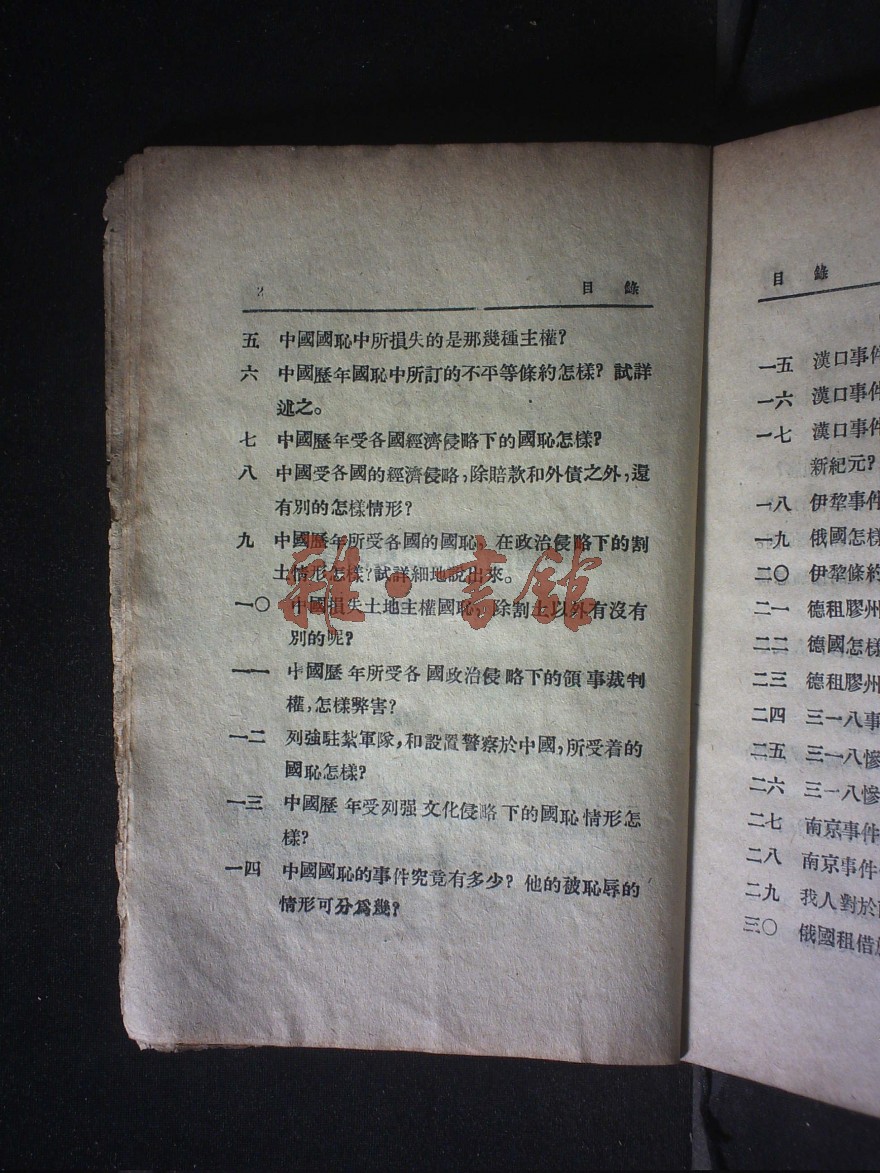 2 目錄
五 中國國恥中所損失的是那幾種主權?
六 中國歷年國恥中所訂的不平等條約怎樣? 試詳
述之。
七 中國歷年受各國經濟侵略下的國恥怎樣?
八 中國受各國的經濟侵略,除賠款和外債之外,還
有別的怎樣情形?
九 中國歷年所受各國的國恥,在政治侵略下的割
土情形怎樣?試詳細地說出來。
一〇 中國損失土地主權國恥,除割土以外有沒有
別的呢?
一一 中國歷年所受各國政治侵略下的領事裁判
權,怎樣弊害?
一二 列強駐紮軍隊,和設置警察於中國,所受着的
國恥怎樣?
一三 中國歷年受列强文化侵略下的國恥情形怎
樣?
一四 中國國恥的事件究竟有多少? 他的被恥辱的
情形可分爲幾?
雜·書館
目錄
一五 漢口事件
一六 漢口事件
一七 漢口事件
新紀元?
一八 伊犂事件
一九 俄國怎樣
二〇 伊犂條約
二一 德租膠州
二二 德國怎樣
二三 德租膠州
二四 三一八事
二五 三一八慘
二六 三一八慘
二七 南京事件
二八 南京事件
二九 我人對於
三〇 俄國租借